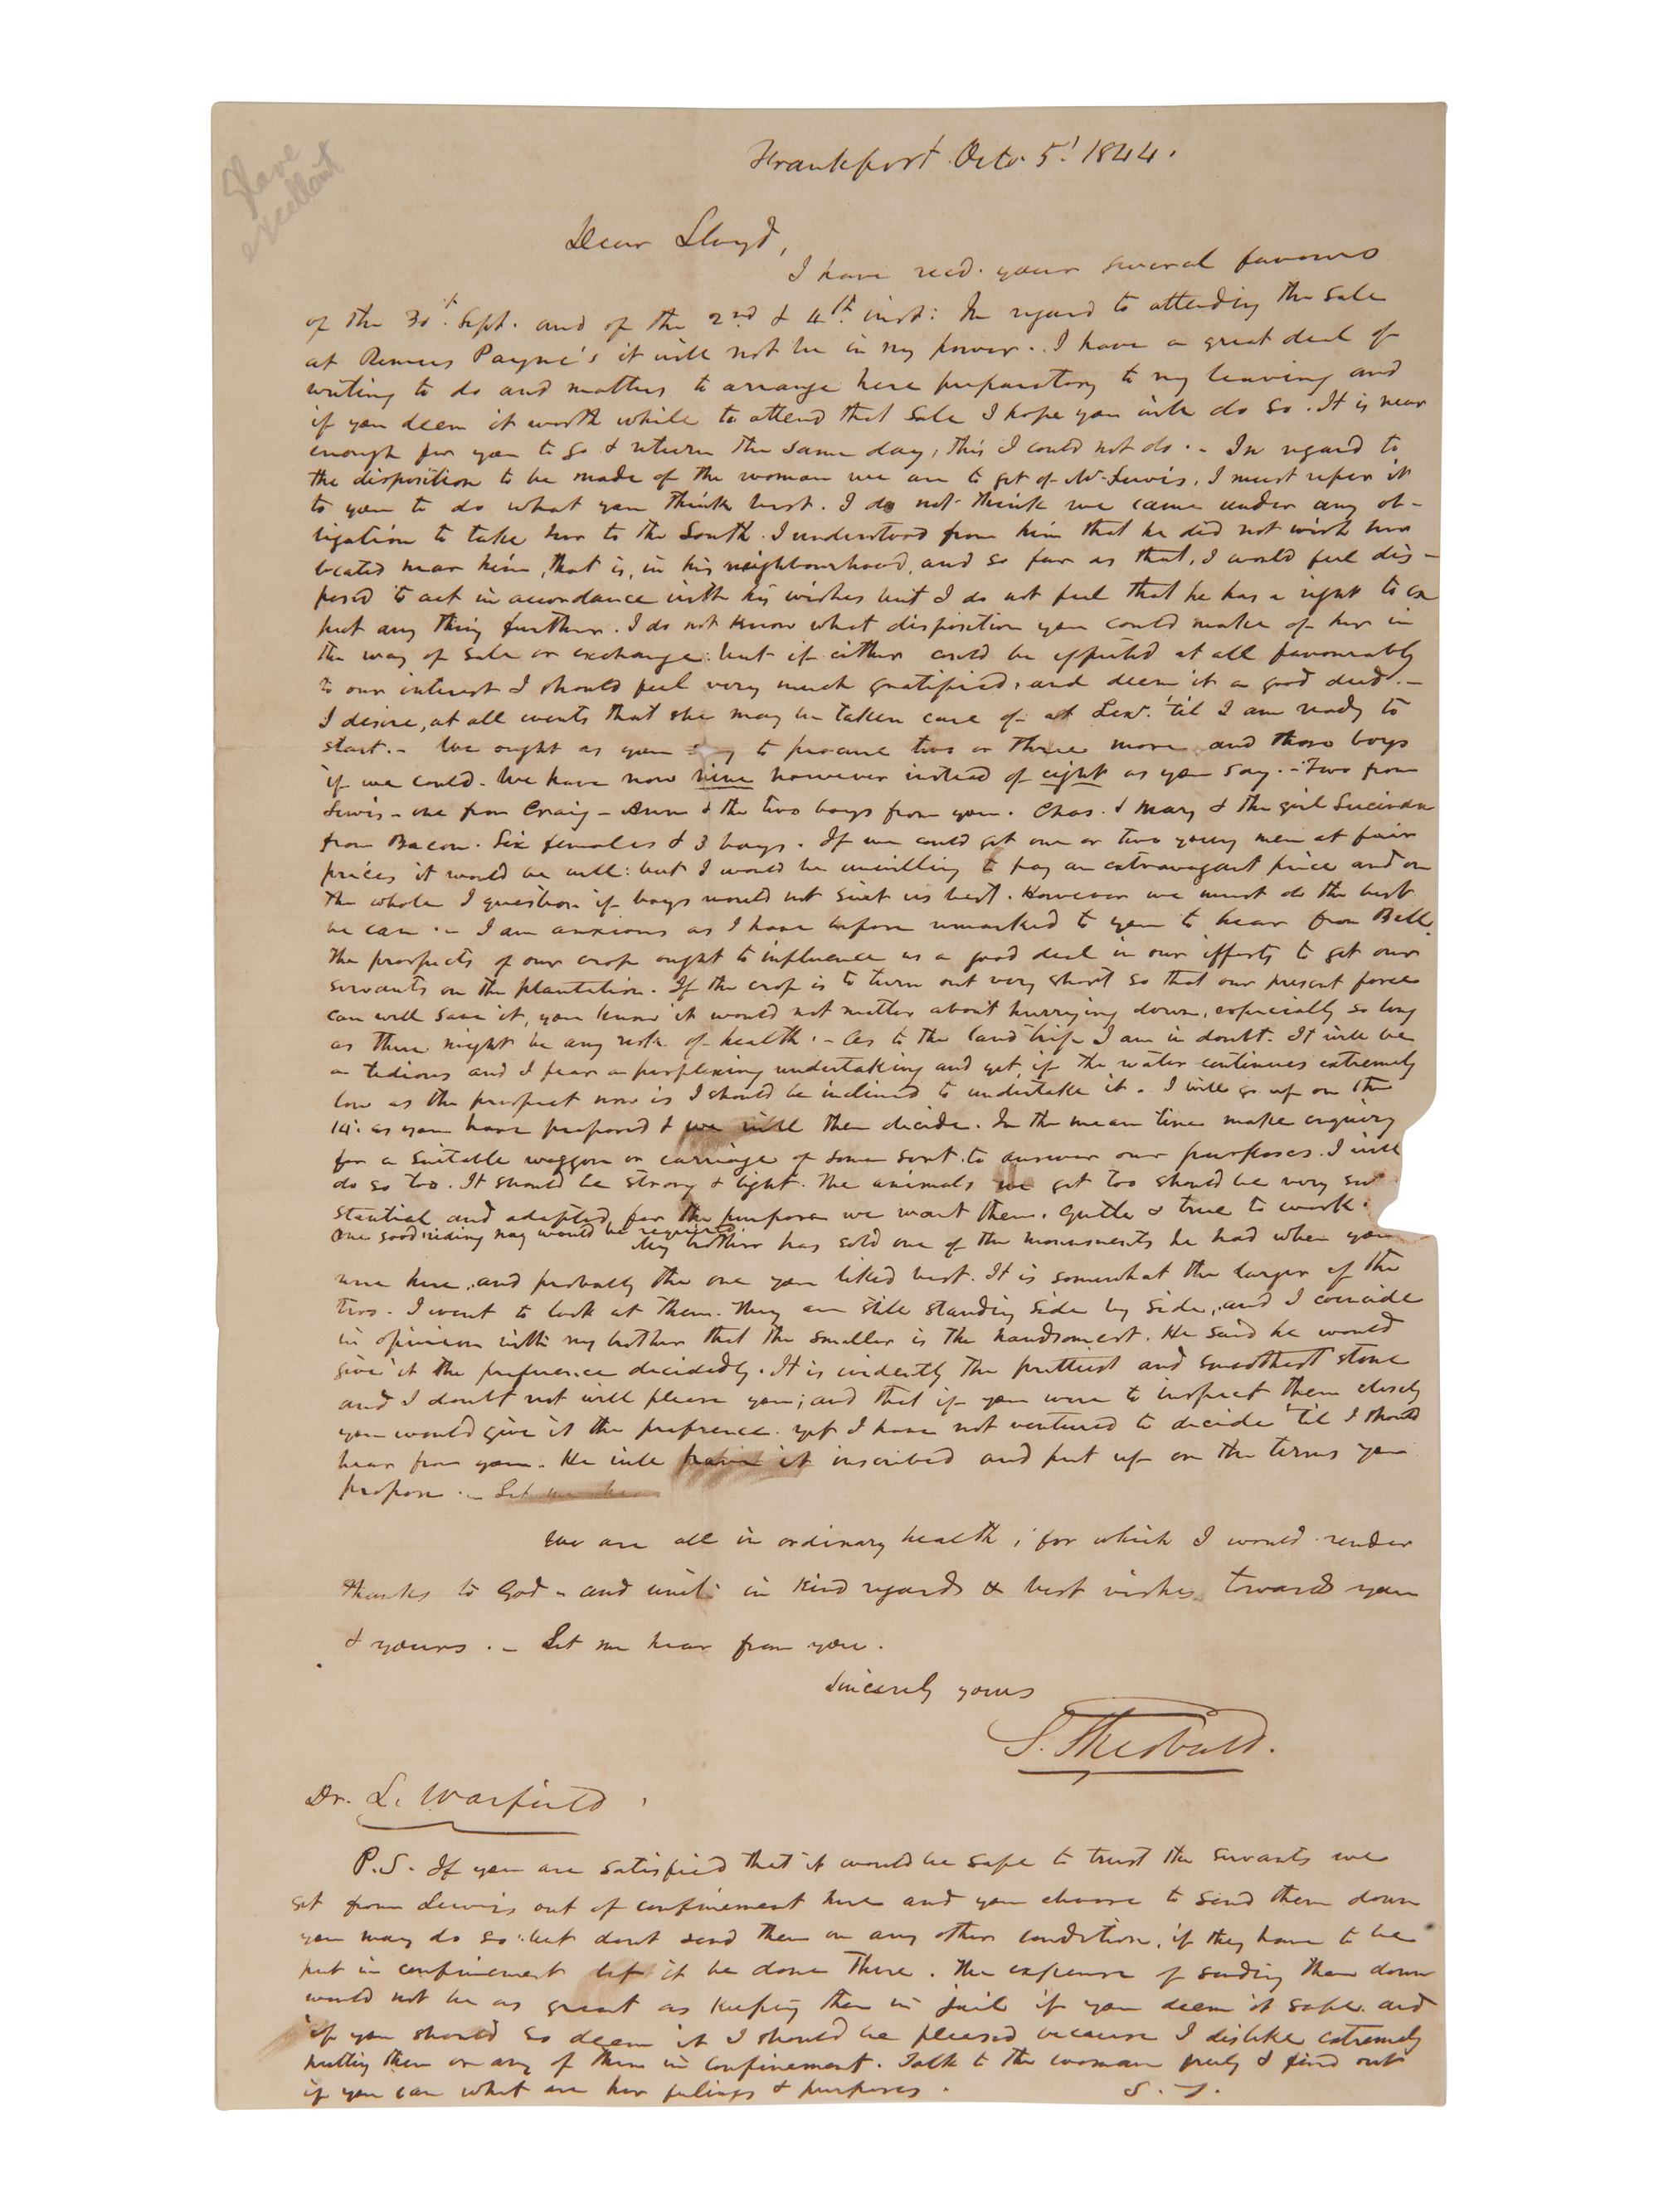 Slave
excellent
Frankfort Octo. 5! 1844.
Dear Lloyd,
I have recd. your several favours
of the 30th. Sept. and of the 2nd & 4th. inst: In regard to attending the sale
at Payne's it will not be in my power. I have a great deal of
writing to do and matters to arrange here preparatory to my leaving and
if you deem it worth while to attend that sale I hope you will do so. It is near
enough for you to go & return the same day, this I could not do. - In regard to
the disposition to be made of the woman we are to get of Mr. Lewis, I must refer it
to you to do what you think best. I do not think we came under any ob-
ligation to take her to the South. I understood from him that he did not wish her
located near him, that is, in his neighbourhood, and so far as that, I would feel dis-
posed to act in accordance with his wishes but I do not feel that he has a right to ex
pect any thing further. I do not know what disposition you could make of her in
the way of sale or exchange: but if either could be effected at all favourably
to our interest I should feel very much gratified, and deem it a good deed. -
I desire, at all events that she may be taken care of at Lexn. 'til I am ready to
start. - We ought as you say to procure two or three more and those boys
if we could. We have now nine however instead of eight as you say. - Two from
Lewis - one from Craig - Ann & the two boys from you. Chas. & Mary & the girl Lucinda
from Bacon. Six females & 3 boys. If we could get one or two young men at fair
prices it would be well: but I would be unwilling to pay an extravagant price and on
the whole I question if boys would not suit us best. However we must do the best
we can. - I am anxious as I have before remarked to you to hear from Bell.
The prospects of our crop ought to influence us a good deal in our efforts to get our
servants on the plantation. If the crop is to turn out very short so that our present force
can well save it, you know it would not matter about hurrying down, especially so long
as there might be any risk of health. - As to the land trip I am in doubt. It will be
a tedious and I fear a perplexing undertaking and yet, if the water continues extremely
low as the prospect now is I should be inclined to undertake it. I will go up on the
14. as you have proposed & we will then decide. In the mean time make enquiry
for a suitable waggon or carriage of some sort to answer our purposes. I will
do so too. It should be strong & light. The animals we get too should be very sub
stantial and adapted for the purpose we want them, gentle & true to work.
One good riding nag would be required.
My brother has sold one of the monuments he had when you
were here, and probably the one you liked best. It is somewhat the larger of the
two. I went to look at them. They are still standing side by side, and I coincide
in opinion with my brother that the smaller is the handsomest. He said he would
give it the preference decidedly. It is evidently the prettiest and smoothest stone
and I doubt not will please you; and that if you were to inspect them closely
you would give it the prefrence. yet I have not ventured to decide 'til I should
hear from you. He will have it inscribed and put up on the terms you
propose. - Let me hear
We are all in ordinary health, for which I would render
thanks to God - and unite in kind regards & best wishes towards you
& yours. - Let me hear from you.
Sincerely yours
S. Theobald.
Dr. L. Warfield
P.S. If you are satisfied that it would be safe to trust the servants we
get from Lewis out of confinement here and you choose to send them down
you may do so: but dont send them on any other condition, if they have to be
put in confinement let it be done there. The expense of sending them down
would not be as great as keeping them in jail if you deem it safe. and
if you should so deem it I should be pleased because I dislike extremely
putting them or any of them in confinement. Talk to the woman freely & find out
if you can what are her feelings & purposes. S. T.